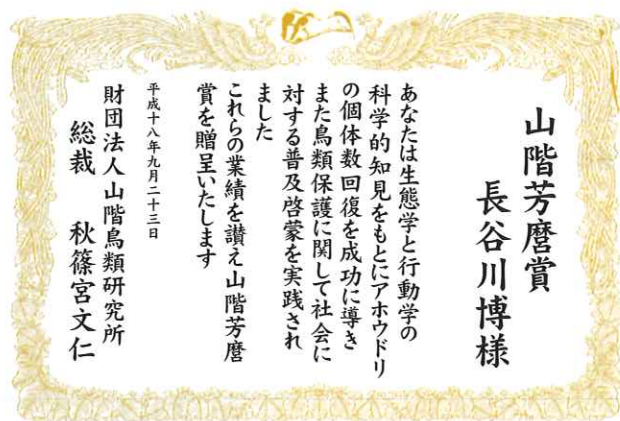 山階芳麿賞
長谷川博様
あなたは生態学と行動学の
科学的知見をもとにアホウドリ
の個体数回復を成功に導き
また鳥類保護に関して社会に
対する普及啓蒙を実践され
ました
これらの業績を讃え山階芳麿
賞を贈呈いたします
平成十八年九月二十三日
財団法人山階鳥類研究所
総裁 秋篠宮文仁